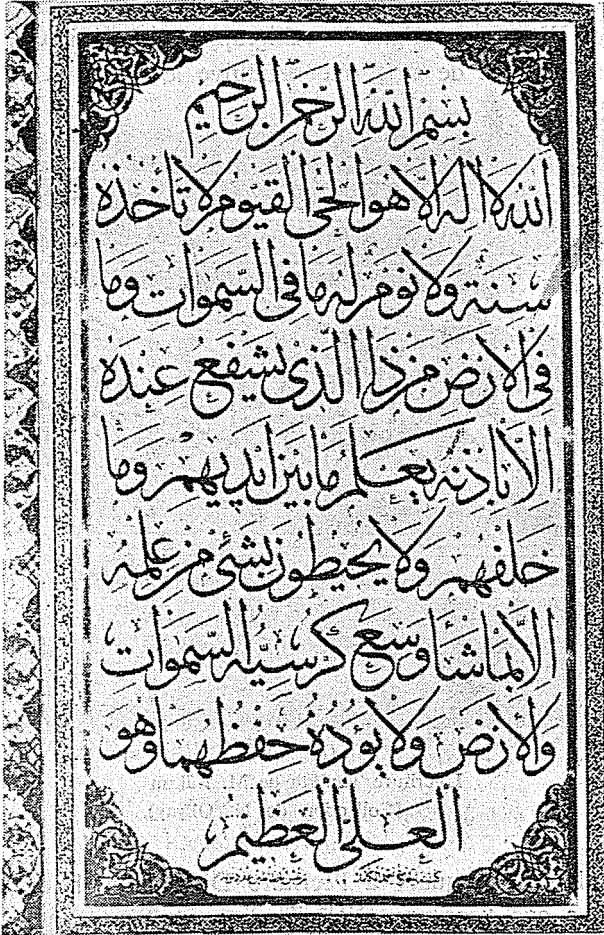 بسم الله الرحمن الرحيم
الله لا اله الا هو الحي القيوم لا تأخذه
سنة ولا نوم له ما في السموات وما
في الارض من ذا الذي يشفع عنده
الا باذنه يعلم ما بين ايديهم وما
خلفهم ولا يحيطون بشئ من علمه
الا بما شا وسع كرسيه السموات
والارض ولا يوده حفظهما وهو
العلي العظيم